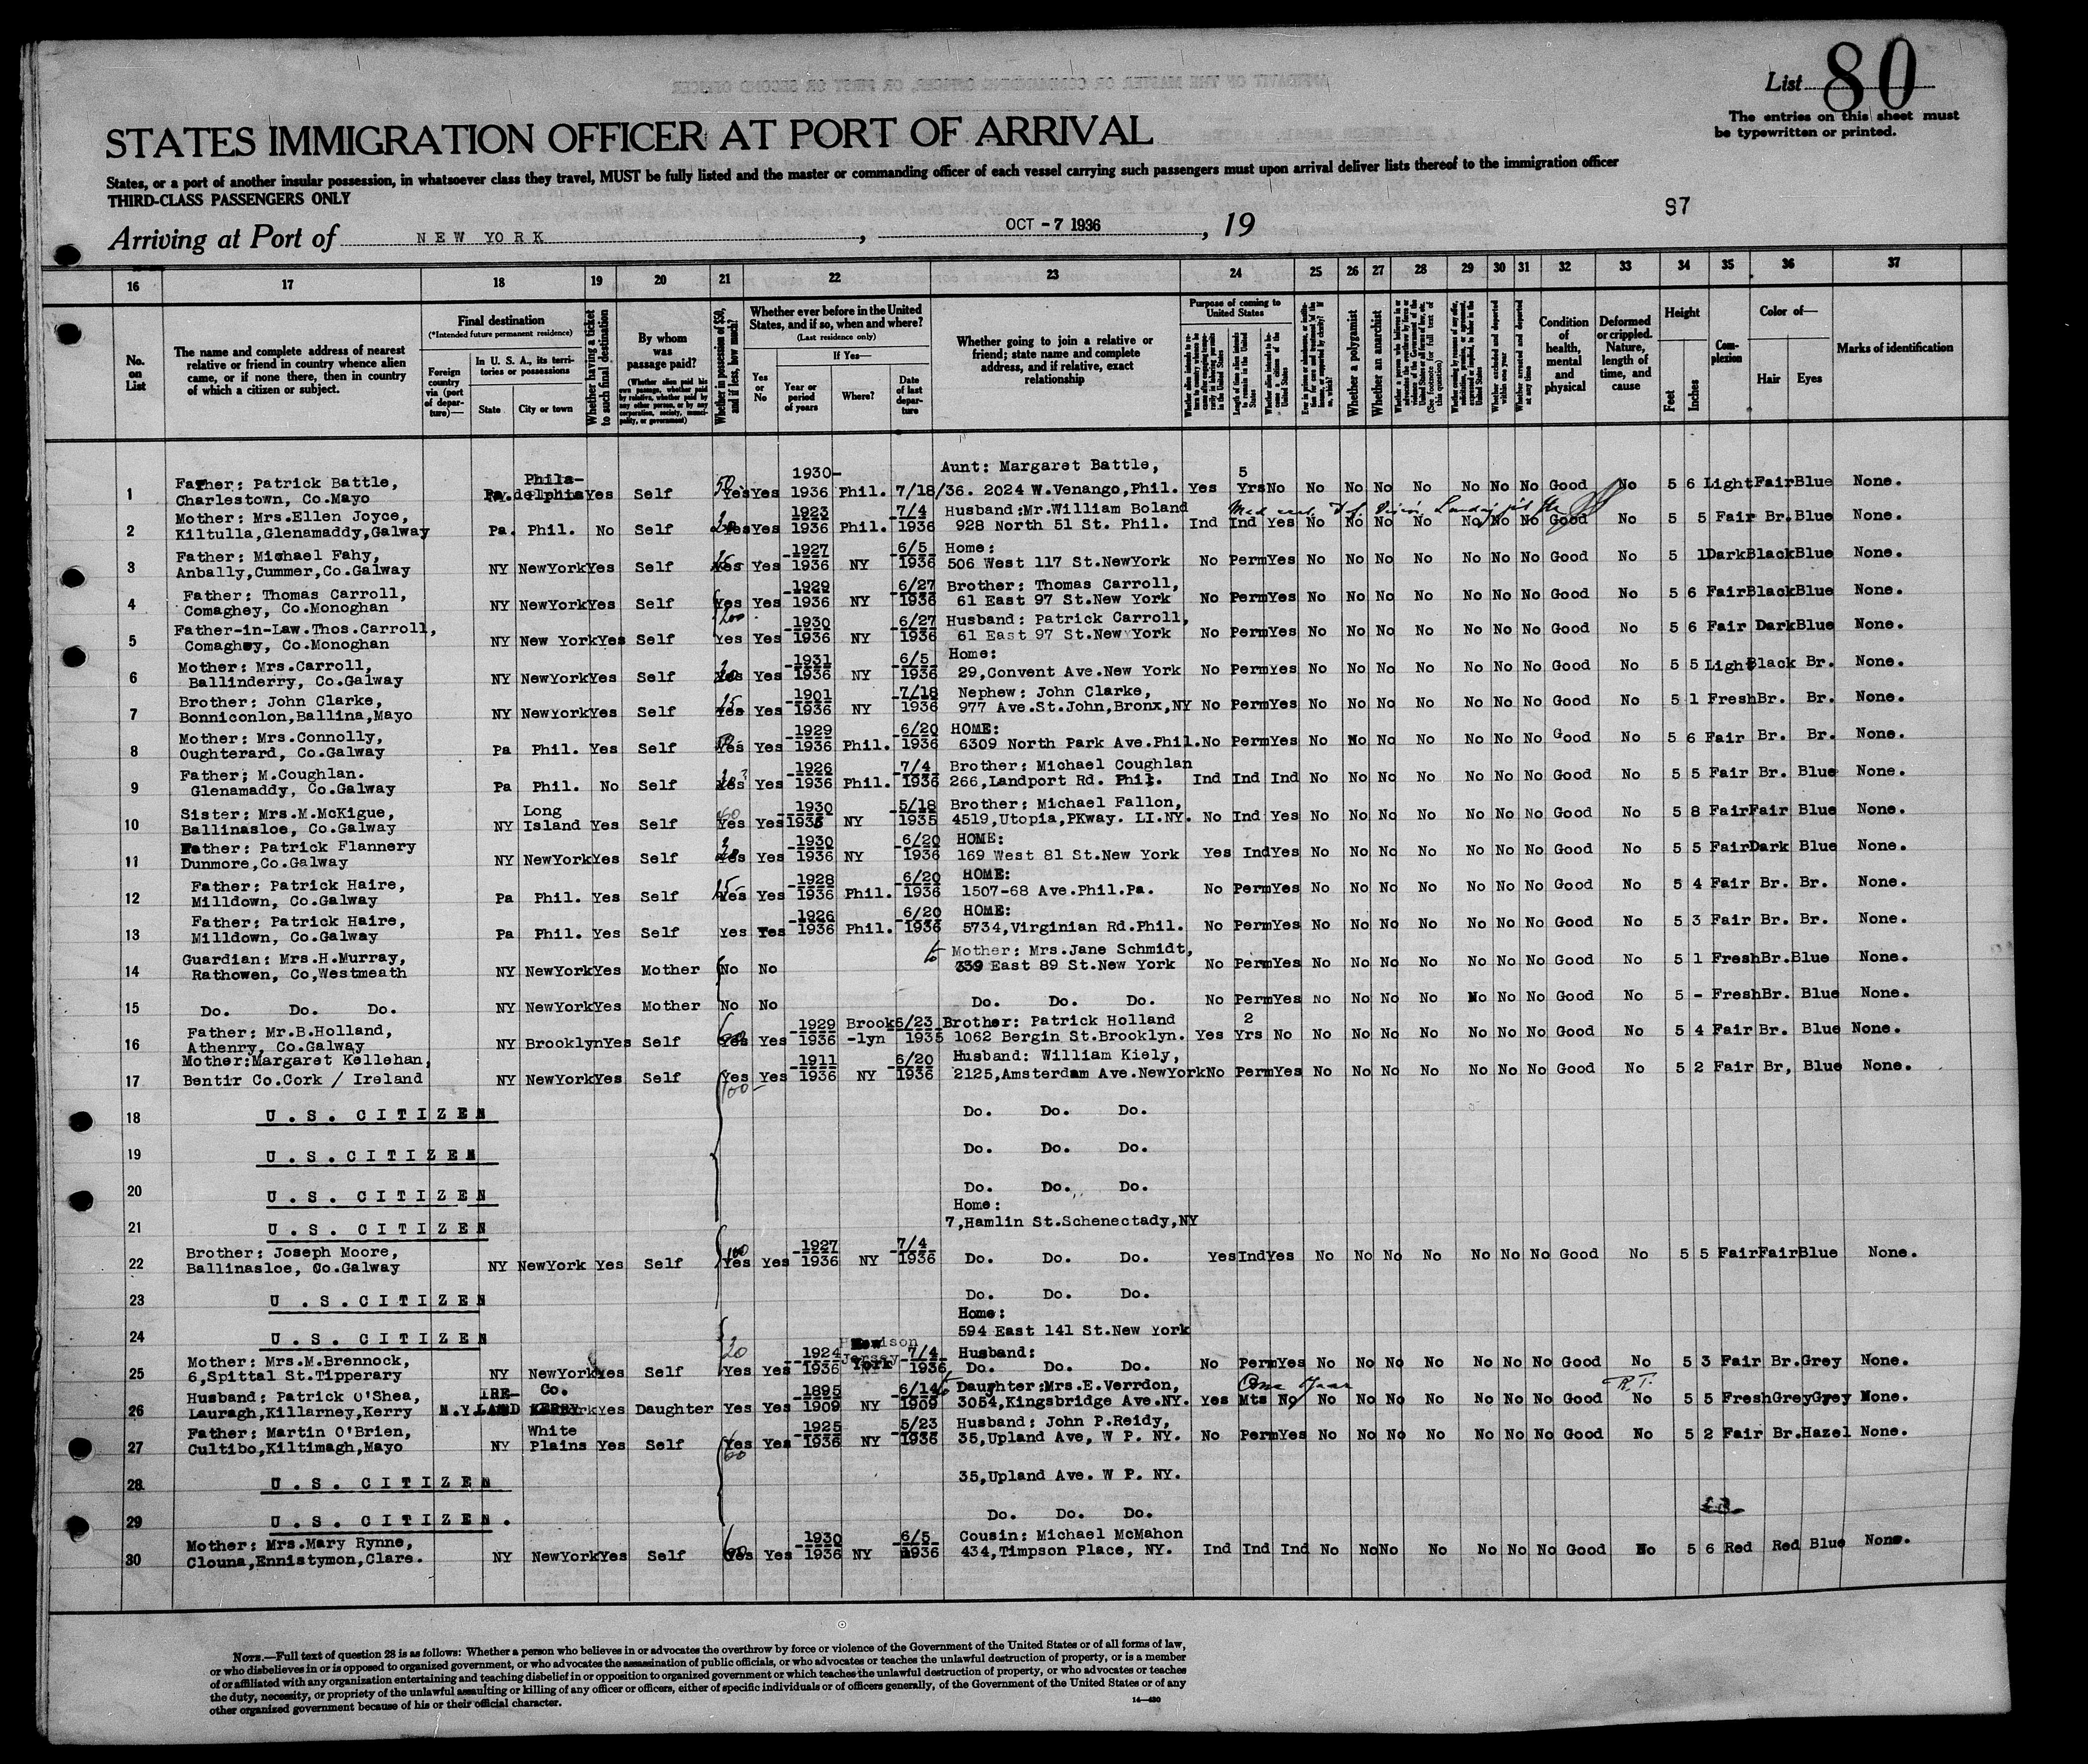 List 80
The entries on this sheet must
be typewritten or printed.
STATES IMMIGRATION OFFICER AT PORT OF ARRIVAL
States, or a port of another insular possession, in whatsoever class they travel, MUST be fully listed and the master or commanding officer of each vessel carrying such passengers must upon arrival deliver lists thereof to the immigration officer
THIRD-CLASS PASSENGERS ONLY
97
Arriving at Port of NEW YORK, OCT -7 1936, 19
16 17 18 19 20 21 22 23 24 25 26 27 28 29 30 31 32 33 34 35 36 37
No. on List
The name and complete address of nearest relative or friend in country whence alien came, or if none there, then in country of which a citizen or subject.
Final destination
(*Intended future permanent residence)
Foreign country via (port of departure)—
In U. S. A., its territories or possessions
State
City or town
Whether having a ticket to such final destination
By whom was passage paid?
(Whether alien paid his own passage, whether paid by relative, whether paid by any other person, or by any corporation, society, municipality, or government)
Whether in possession of $50, and if less, how much?
Whether ever before in the United States, and if so, when and where?
(Last residence only)
Yes or No
If Yes—
Year or period of years
Where?
Date of last departure
Whether going to join a relative or friend; state name and complete address, and if relative, exact relationship
Purpose of coming to United States
Whether a polygamist
Whether an anarchist
Condition of health, mental and physical
Deformed or crippled. Nature, length of time, and cause
Height
Feet
Inches
Complexion
Color of—
Hair
Eyes
Marks of identification
1 Father: Patrick Battle, Charlestown, Co.Mayo Pa. Philadelphia Yes Self 50 Yes Yes 1930-1936 Phil. 7/18/36. Aunt: Margaret Battle, 2024 W.Venango,Phil. Yes 5 Yrs No No No No No No No No Good No 5 6 Light Fair Blue None.
2 Mother: Mrs.Ellen Joyce, Kiltulla,Glenamaddy,Galway Pa. Phil. No Self Yes Yes 1923-1936 Phil. 7/4 1936 Husband:Mr.William Boland 928 North 51 St. Phil. Ind Ind Yes No No No No No No No Good No 5 5 Fair Br. Blue None.
3 Father: Michael Fahy, Anbally,Cummer,Co.Galway NY NewYork Yes Self Yes Yes 1927-1936 NY 6/5 1936 Home: 506 West 117 St.NewYork No Perm Yes No No No No No No No Good No 5 1 Dark Black Blue None.
4 Father: Thomas Carroll, Comaghey, Co.Monoghan NY NewYork Yes Self Yes Yes 1929-1936 NY 6/27 1936 Brother: Thomas Carroll, 61 East 97 St.New York No Perm Yes No No No No No No No Good No 5 6 Fair Black Blue None.
5 Father-in-Law.Thos.Carroll, Comaghey, Co.Monoghan NY New York Yes Self 200 Yes Yes 1930-1936 NY 6/27 1936 Husband: Patrick Carroll, 61 East 97 St.New York No Perm Yes No No No No No No No Good No 5 6 Fair Dark Blue None.
6 Mother: Mrs.Carroll, Ballinderry, Co.Galway NY NewYork Yes Self Yes Yes 1931-1936 NY 6/5 1936 Home: 29,Convent Ave.New York No Perm Yes No No No No No No No Good No 5 5 Light Black Br. None.
7 Brother: John Clarke, Bonniconlon,Ballina,Mayo NY NewYork Yes Self Yes Yes 1901-1936 NY 7/18 1936 Nephew: John Clarke, 977 Ave.St.John,Bronx,NY No Perm Yes No No No No No No No Good No 5 1 Fresh Br. Br. None.
8 Mother: Mrs.Connolly, Oughterard, Co.Galway Pa Phil. Yes Self Yes Yes 1929-1936 Phil. 6/20 1936 HOME: 6309 North Park Ave.Phil. No Perm Yes No No No No No No No Good No 5 6 Fair Br. Br. None.
9 Father; M.Coughlan. Glenamaddy, Co.Galway Pa Phil. No Self Yes Yes 1926-1936 Phil. 7/4 1936 Brother: Michael Coughlan 266,Landport Rd. Phil. Ind Ind Ind No No No No No No No Good No 5 5 Fair Br. Blue None.
10 Sister: Mrs.M.McKigue, Ballinasloe, Co.Galway NY Long Island Yes Self 60 Yes Yes 1930-1935 NY 5/18 1935 Brother: Michael Fallon, 4519,Utopia,PKway. LI.NY. No Ind Yes No No No No No No No Good No 5 8 Fair Fair Blue None.
11 Father: Patrick Flannery Dunmore,Co.Galway NY NewYork Yes Self Yes Yes 1930-1936 NY 6/20 1936 HOME: 169 West 81 St.New York Yes Ind Yes No No No No No No No Good No 5 5 Fair Dark Blue None.
12 Father: Patrick Haire, Milldown, Co.Galway Pa Phil. Yes Self Yes Yes 1928-1936 Phil. 6/20 1936 HOME: 1507-68 Ave.Phil.Pa. No Perm Yes No No No No No No No Good No 5 4 Fair Br. Br. None.
13 Father: Patrick Haire, Milldown, Co.Galway Pa Phil. Yes Self Yes Yes 1926-1936 Phil. 6/20 1936 HOME: 5734,Virginian Rd.Phil. No Perm Yes No No No No No No No Good No 5 3 Fair Br. Br. None.
14 Guardian: Mrs.H.Murray, Rathowen, Co,Westmeath NY NewYork Yes Mother No No Mother: Mrs.Jane Schmidt, 339 East 89 St.New York No Perm Yes No No No No No No No Good No 5 1 Fresh Br. Blue None.
15 Do. Do. Do. NY NewYork Yes Mother No No Do. Do. Do. No Perm Yes No No No No No No No Good No 5 - Fresh Br. Blue None.
16 Father: Mr.B.Holland, Athenry, Co.Galway NY Brooklyn Yes Self Yes Yes 1929-1936 Brook-lyn 6/23 1935 Brother: Patrick Holland 1062 Bergin St.Brooklyn. Yes 2 Yrs No No No No No No No No Good No 5 4 Fair Br. Blue None.
17 Mother:Margaret Kellehan, Bentir Co.Cork / Ireland NY NewYork Yes Self 100 Yes Yes 1911-1936 NY 6/20 1936 Husband: William Kiely, 2125,Amsterdam Ave.NewYork No Perm Yes No No No No No No No Good No 5 2 Fair Br, Blue None.
18 U.S. CITIZEN Do. Do. Do.
19 U.S.CITIZEN Do. Do. Do.
20 U.S. CITIZEN Do. Do. Do.
21 U.S. CITIZEN Home: 7,Hamlin St.Schenectady,NY
22 Brother: Joseph Moore, Ballinasloe, Co.Galway NY NewYork Yes Self 100 Yes Yes 1927-1936 NY 7/4 1936 Do. Do. Do. Yes Ind Yes No No No No No No No Good No 5 5 Fair Fair Blue None.
23 U.S.CITIZEN Do. Do. Do.
24 U.S. CITIZEN Home: 594 East 141 St.New York
25 Mother: Mrs.M.Brennock, 6,Spittal St.Tipperary NY NewYork Yes Self 20 Yes Yes 1924-1936 Jersey 7/4 1936 Husband: Do. Do. Do. No Perm Yes No No No No No No No Good No 5 3 Fair Br. Grey None.
26 Husband: Patrick O'Shea, Lauragh,Killarney,Kerry IRELAND Co. KERRY Yes Daughter Yes Yes 1895-1909 NY 6/14 1909 Daughter:Mrs.E.Verrdon, 3054,Kingsbridge Ave.NY. Yes One Year Mts No No No No No No No No Good R.T. No 5 5 Fresh Grey Grey None.
27 Father: Martin O'Brien, Cultibo,Kiltimagh,Mayo NY White Plains Yes Self 60 Yes Yes 1925-1936 NY 5/23 1936 Husband: John P.Reidy, 35,Upland Ave, W P. NY. No Perm Yes No No No No No No No Good No 5 2 Fair Br. Hazel None.
28 U.S. CITIZEN 35,Upland Ave. W P. NY.
29 U.S. CITIZEN. Do. Do. Do.
30 Mother: Mrs.Mary Rynne, Clouna,Ennistymon,Clare. NY NewYork Yes Self Yes Yes 1930-1936 NY 6/5 1936 Cousin: Michael McMahon 434,Timpson Place, NY. Ind Ind Ind No No No No No No No Good No 5 6 Red Red Blue None.
NOTE.—Full text of question 28 is as follows: Whether a person who believes in or advocates the overthrow by force or violence of the Government of the United States or of all forms of law,
or who disbelieves in or is opposed to organized government, or who advocates the assassination of public officials, or who advocates or teaches the unlawful destruction of property, or is a member
of or affiliated with any organization entertaining and teaching disbelief in or opposition to organized government or which teaches the unlawful destruction of property, or who advocates or teaches
the duty, necessity, or propriety of the unlawful assaulting or killing of any officer or officers, either of specific individuals or of officers generally, of the Government of the United States or of any
other organized government because of his or their official character.
14—430